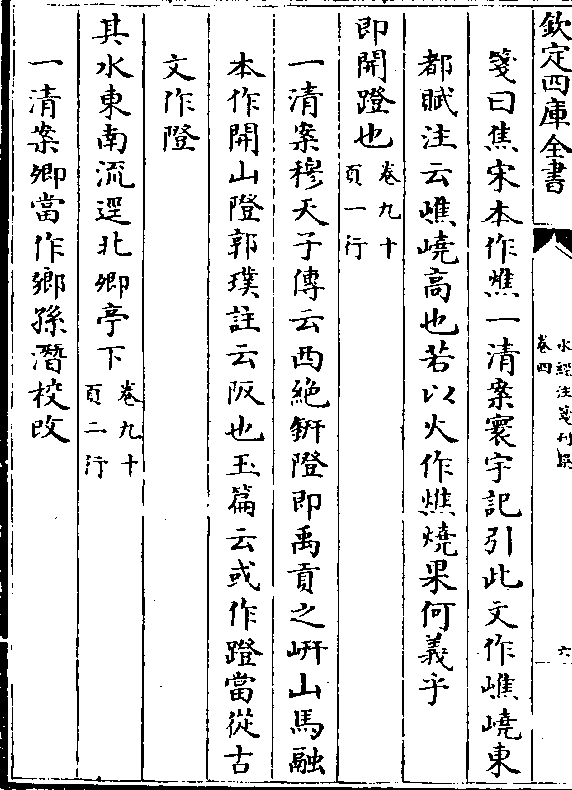 欽定四庫全書
水經注箋刊誤
卷四
六
箋曰焦宋本作燋一清案寰宇記引此文作嶕嶢東
都賦注云嶕嶢高也若以火作燋燒果何義乎
即開蹬也卷九十
頁一行
一清案穆天子傳云西絶鈃隥即禹貢之岍山馬融
本作開山隥郭璞註云阪也玉篇云或作蹬當從古
文作隥
其水東南流逕北卿亭下卷九十
頁二行
一清案卿當作鄉孫潛校改